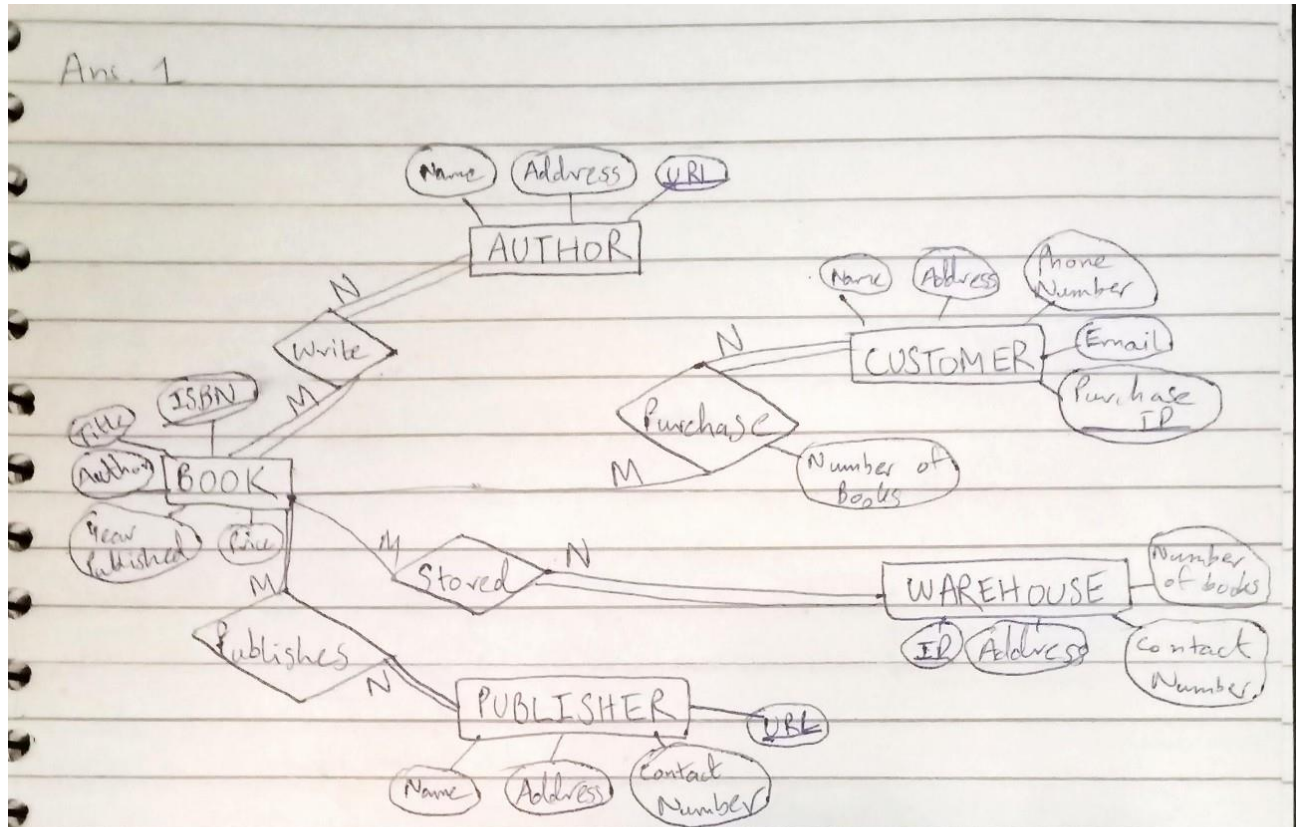 Ans. 1
Name
Address
URL
AUTHOR
N
Write
M
Name
Address
Phone
Number
CUSTOMER
Email
Purchase
ID
N
Purchase
M
Number of
Books
ISBN
Title
Author
BOOK
Year
Published
Price
M
Stored
N
WAREHOUSE
Number
of books
ID
Address
Contact
Number
M
Publishes
N
PUBLISHER
URL
Name
Address
Contact
Number